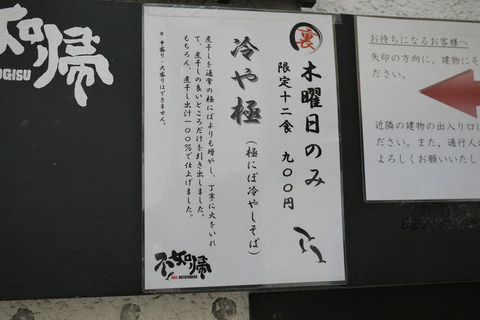 不如帰
OGISU
裏
木曜日のみ
限定十二食　九〇〇円
冷や極（極にぼ冷やしそば）
煮干しを通常の極にぼよりも増やし、丁寧に火をいれ
て、煮干しの良いところだけを引き出しました。
もちろん、煮干し出汁一〇〇％で仕上げました。
＊中盛り・大盛りはできません。
不如帰
お待ちになるお客様へ
矢印の方向に、建物にそ
ださい。
近隣の建物の出入り口
ださい。また、通行人の
よろしくお願いいたし